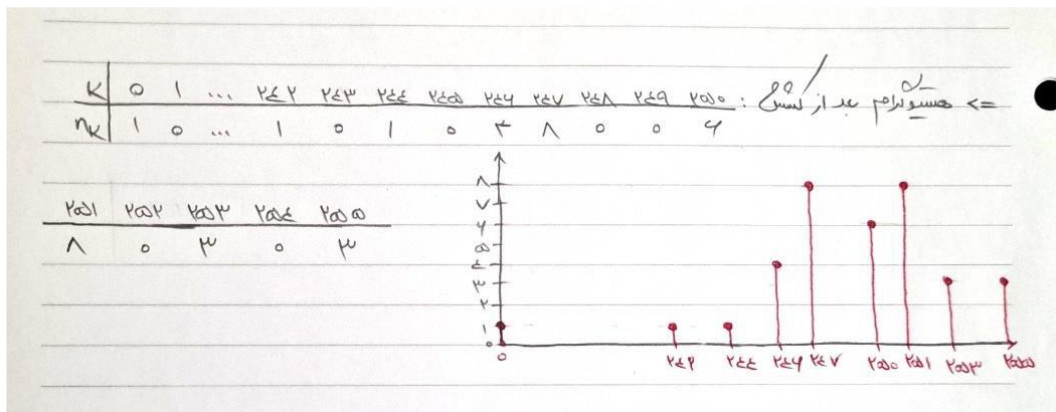 => هیستوگرام بعد از کشش :
K | ۰ ۱ ... ۲۴۲ ۲۴۳ ۲۴۴ ۲۴۵ ۲۴۶ ۲۴۷ ۲۴۸ ۲۴۹ ۲۵۰
nK | ۱ ۰ ... ۱ ۰ ۱ ۰ ۴ ۸ ۰ ۰ ۶
۲۵۱ ۲۵۲ ۲۵۳ ۲۵۴ ۲۵۵
۸ ۰ ۳ ۰ ۳
۸
۷
۶
۵
۴
۳
۲
۱
۰
۰ ۲۴۲ ۲۴۴ ۲۴۶ ۲۴۷ ۲۵۰ ۲۵۱ ۲۵۳ ۲۵۵